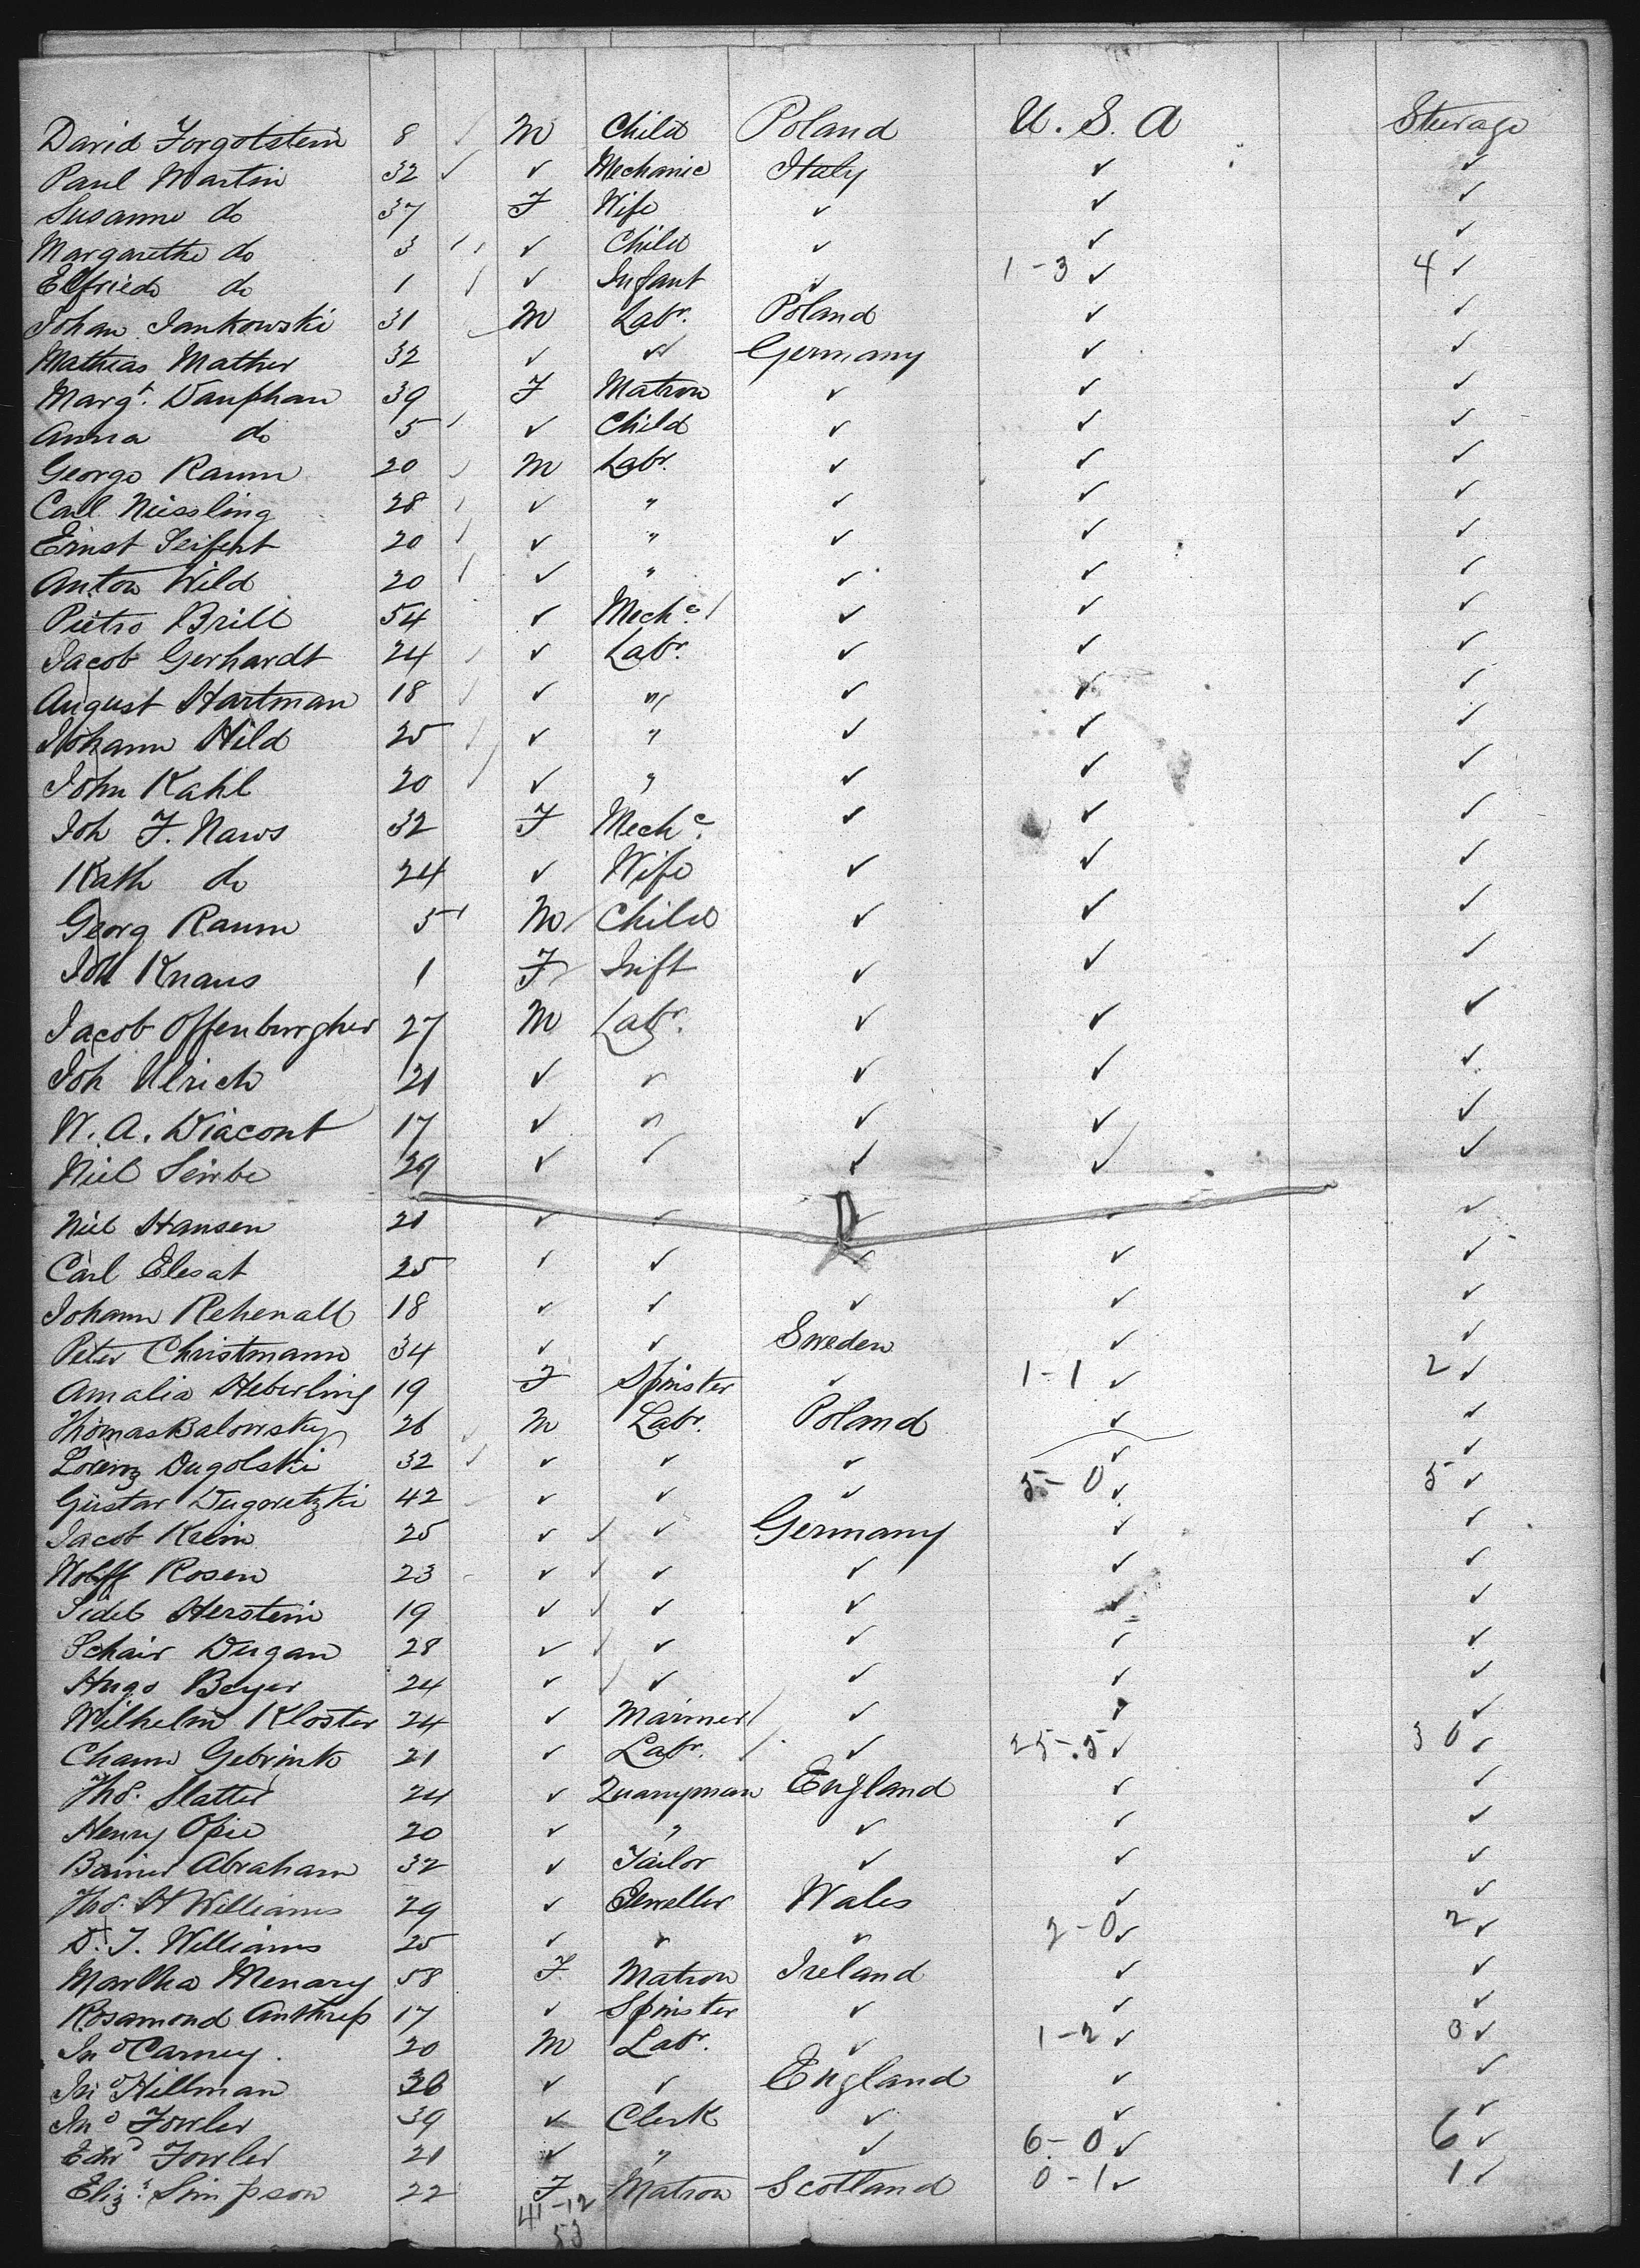 David Forgotstein 8 ✓ M Child Poland U. S. A Sterage
Paul Martin 32 ✓ ✓ Mechanic Italy ✓ ✓
Susanne do 37 F Wife ✓ ✓ ✓
Margarethe do 3 ✓ Child ✓ ✓ ✓
Elfriede do 1 ✓ Infant ✓ 1-3 ✓ 4 ✓
Johan Jankowski 31 M Labr. Poland ✓ ✓
Mathias Mather 32 ✓ ✓ Germany ✓ ✓
Margt. Dauphan 39 F Matron ✓ ✓ ✓
Anna do 5 ✓ Child ✓ ✓ ✓
George Raum 20 M Labr. ✓ ✓ ✓
Carl Niessling 28 ✓ " ✓ ✓ ✓
Ernst Seifert 20 ✓ " ✓ ✓ ✓
Anton Wild 20 ✓ " ✓ ✓ ✓
Pietro Brill 54 ✓ Mechc. ✓ ✓ ✓
Jacob Gerhardt 24 ✓ Labr. ✓ ✓ ✓
August Hartman 18 ✓ " ✓ ✓ ✓
Johann Hild 25 ✓ " ✓ ✓ ✓
John Kahl 20 ✓ " ✓ ✓ ✓
Joh F. Naws 32 F Mechc. ✓ ✓ ✓
Kath do 24 ✓ Wife ✓ ✓ ✓
Georg Raum 5 M Child ✓ ✓ ✓
Joh Knaus 1 F Inft ✓ ✓ ✓
Jacob Offenburgher 27 M Labr. ✓ ✓ ✓
Joh Ulrich 21 ✓ " ✓ ✓ ✓
W. A. Diacont 17 ✓ " ✓ ✓ ✓
Niel 29 ✓ ✓ ✓ ✓ ✓
Niel Hansen 21 ✓ ✓ ✓ ✓ ✓
Carl Elesat 25 ✓ ✓ ✓ ✓ ✓
Johann Rehenall 18 ✓ ✓ ✓ ✓ ✓
Peter Christmann 34 ✓ ✓ Sweden ✓ ✓
Amalia Heberling 19 F Spinster ✓ 1-1 ✓ 2 ✓
Thomas Balowsky 26 M Labr. Poland ✓ ✓
Lorenz Dugolski 32 ✓ ✓ ✓ ✓ ✓ ✓
Gustav Dugoretzki 42 ✓ ✓ ✓ 5-0 ✓ 5 ✓
Jacob Krein 25 ✓ ✓ Germany ✓ ✓
Wolff Rosen 23 ✓ ✓ ✓ ✓ ✓
Sidel Herstein 19 ✓ ✓ ✓ ✓ ✓
Schair Dugan 28 ✓ ✓ ✓ ✓ ✓
Hugo Beyer 24 ✓ ✓ ✓ ✓ ✓
Wilhelm Kloster 24 ✓ Mariner ✓ ✓ ✓
Chaim Gebrink 21 ✓ Labr. ✓ 25-5 ✓ 30 ✓
Thos. Slatter 24 ✓ Quarryman England ✓ ✓
Henry Opie 20 ✓ " ✓ ✓ ✓
Abraham 32 ✓ Tailor ✓ ✓ ✓
Thos. H Williams 29 ✓ Jeweller Wales ✓ ✓
D. J. Williams 25 ✓ ✓ ✓ 2-0 ✓ 2 ✓
Martha Menary 58 F. Matron Ireland ✓ ✓
Rosamond Anthrep 17 ✓ Spinster ✓ ✓ ✓
Jno Carney. 20 M Labr. ✓ 1-2 ✓ 3 ✓
Jno Hillman 36 ✓ ✓ England ✓ ✓
Jno Fowler 39 ✓ Clerk ✓ ✓ ✓
Edwd Fowler 21 ✓ " ✓ 6-0 ✓ 6 ✓
Eliz. Simpson 22 F Matron Scotland 0-1 ✓ 1 ✓
41-12
53